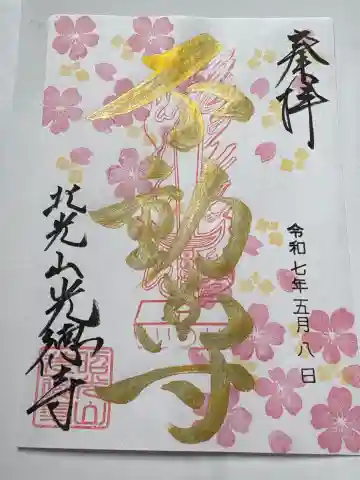 奉拝
令和七年五月八日
不動尊
北光山光徳寺